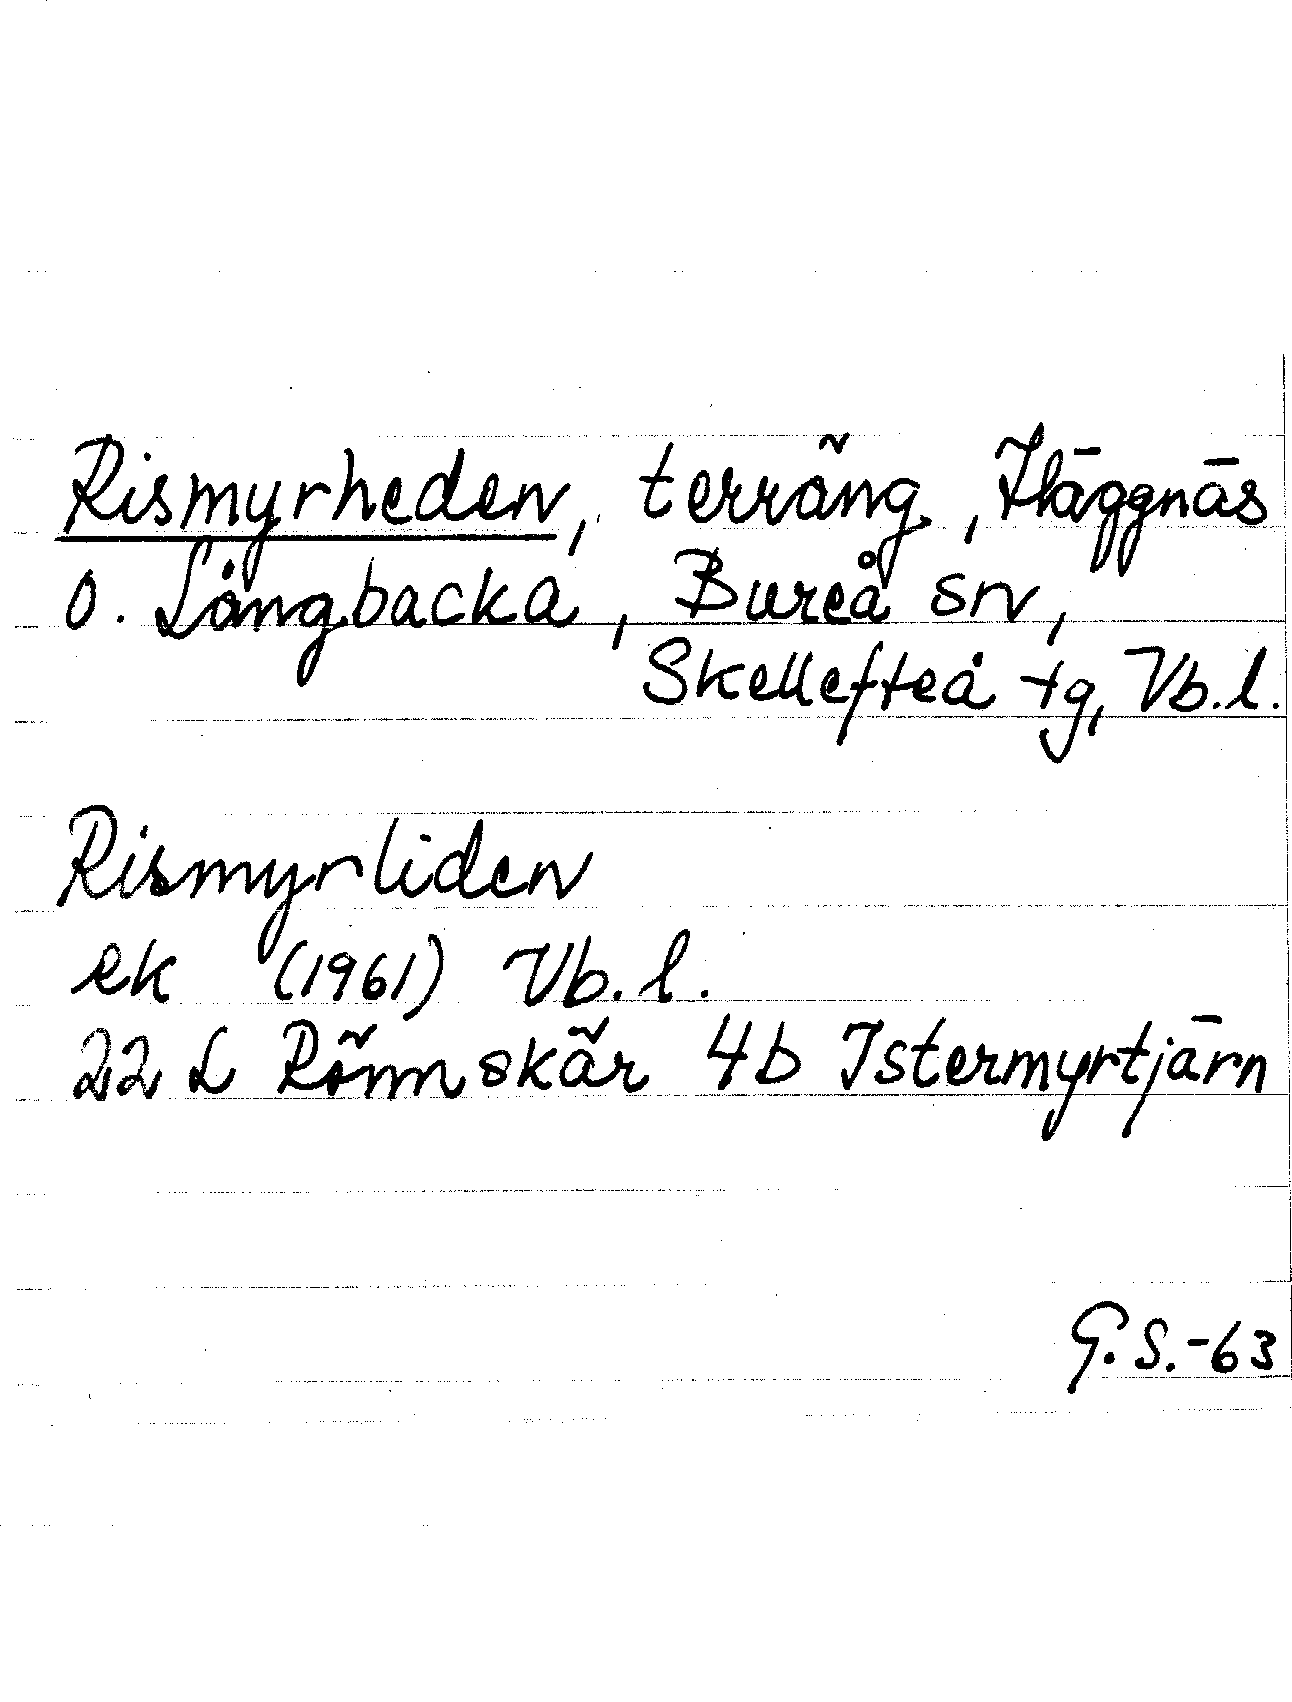 Rismyrheden, terräng, Häggnäs
o. Långbacka, Bureå sn,
Skellefteå tg, Vb.l.
Rismyrliden
ek (1961) Vb.l.
22 L Rönnskär 4b Istermyrtjärn
G.S.-63